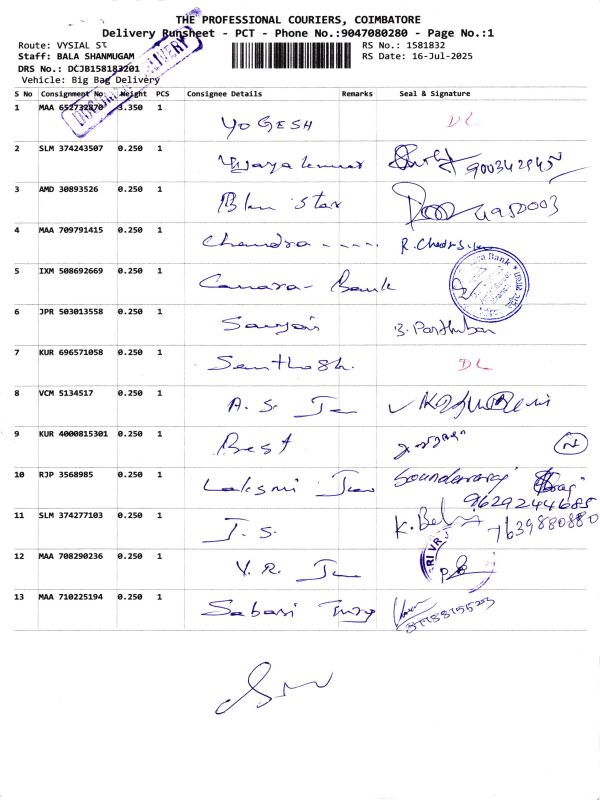 THE PROFESSIONAL COURIERS, COIMBATORE
Delivery Runsheet - PCT - Phone No.:9047080280 - Page No.:1
Route: VYSIAL ST
RS No.: 1581832
Staff: BALA SHANMUGAM
RS Date: 16-Jul-2025
DRS No.: DCJB158183201
Vehicle: Big Bag Delivery
DELIVERY
S No Consignment No. Weight PCS Consignee Details Remarks Seal & Signature
1 MAA 652732870 3.350 1 YOGESH DL
2 SLM 374243507 0.250 1 Vijayakumar
3 AMD 30893526 0.250 1 Blue Star
4 MAA 709791415 0.250 1 Chandra
5 IXM 508692669 0.250 1 Canara Bank
6 JPR 503013558 0.250 1 B. Parthiban
7 KUR 696571058 0.250 1 Santhosh. DL
8 VCM 5134517 0.250 1 A. S.
9 KUR 4000815301 0.250 1 Best
10 RJP 3568985 0.250 1 Laksmi Soundarraj
9629244685
11 SLM 374277103 0.250 1 J. S. K. 7639880880
12 MAA 708290236 0.250 1 V. R.
13 MAA 710225194 0.250 1 Sabari